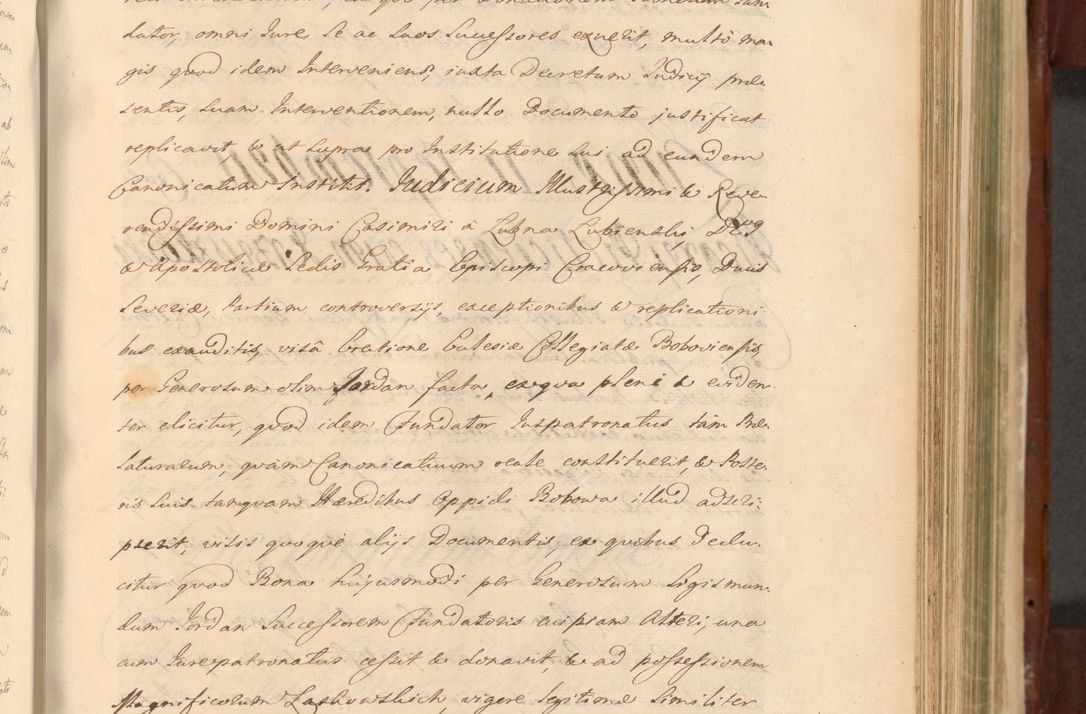 lator, omni Jure Se ac Suos Successores exuerit, multò ma-
gis quod idem Interveniens, iuxta Decretum Judicij præ-
sentis, Suam Interventionem, nullo Documento justificat
replicavit & ut Supra pro Institutione Sui ad eundem
Canonicatum Institit. Judicium Illustrissimi & Reve-
rendissimi Domini Casimiri à Łubna Łubienski, Dei
& Apostolicæ Sedis Gratia Episcopi Cracoviensis, Ducis
Severiæ, Partium controversijs, exceptionibus & replicationi-
bus exauditis, visâ Erectione Ecclesiæ Collegiatæ Boboviensis,
per Generosum olim Jordan facta, ex qua plenè & eviden-
ter elicitur, quod idem Fundator Juspatronatus tàm Præ-
laturarum, quàm Canonicatuum reale constituerit, & Poste-
ris Suis tanquam Hæredibus Oppidi Bobowa illud adscri-
pserit, visis quoque alijs Documentis, ex quibus dedu-
citur quod Bona hujusmodi per Generosum Sigismun-
dum Jordan Successorem Fundatoris cuipiam Alteri, una
cum Jurepatronatus cessit & donavit, & ad possessionem
Magnificorum Laskowskich, vigere legitimæ Similiter